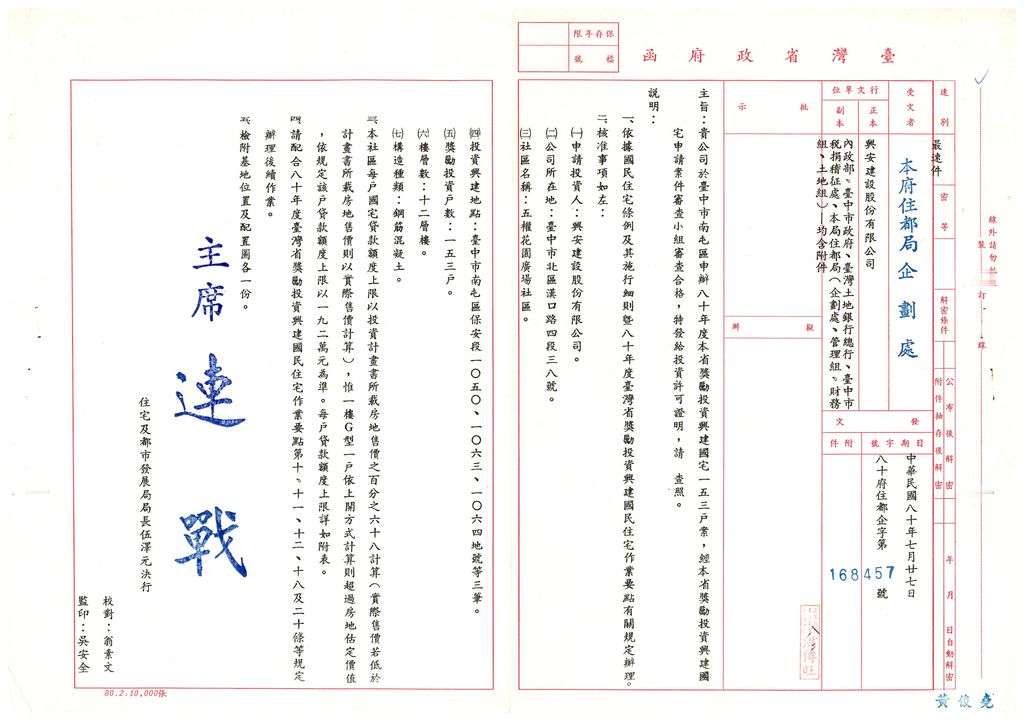 保存年限
檔號
臺灣省政府函
速別
最速件
密等
解密條件
公布後解密
附件抽存後解密
年月日自動解密
受文者
本府住都局企劃處
行文單位
正本
興安建設股份有限公司
副本
內政部、臺中市政府、臺灣土地銀行總行、臺中市
稅捐稽征處、本局住都局（企劃處、管理組、財務
組、土地組）—均含附件
發文
日期
中華民國八十年七月廿七日
字號
八十府住都企字第168457號
附件
批示
擬辦
主旨：貴公司於臺中市南屯區申辦八十年度本省獎勵投資興建國宅一五三戶案，經本省獎勵投資興建國
宅申請案件審查小組審查合格，特發給投資許可證明，請　查照。
說明：
一、依據國民住宅條例及其施行細則暨八十年度臺灣省獎勵投資興建國民住宅作業要點有關規定辦理。
二、核准事項如左：
㈠申請投資人：興安建設股份有限公司。
㈡公司所在地：臺中市北區漢口路四段三八號。
㈢社區名稱：五權花園廣場社區。
㈣投資興建地點：臺中市南屯區保安段一〇五〇、一〇六三、一〇六四地號等三筆。
㈤獎勵投資戶數：一五三戶。
㈥樓層數：十二層樓。
㈦構造種類：鋼筋混凝土。
三、本社區每戶國宅貸款額度上限以投資計畫書所載房地售價之百分之六十八計算（實際售價若低於
計畫書所載房地售價則以實際售價計算），惟一樓G型一戶依上開方式計算則超過房地估定價值
，依規定該戶貸款額度上限以一九二萬元為準。每戶貸款額度上限詳如附表。
四、請配合八十年度臺灣省獎勵投資興建國民住宅作業要點第十、十一、十二、十八及二十條等規定
辦理後續作業。
五、檢附基地位置及配置圖各一份。
主席 連戰
住宅及都市發展局局長伍澤元決行
校對：翁素文
監印：吳安全
80.2.10,000張
線外請勿批
裝訂線
黃俊堯